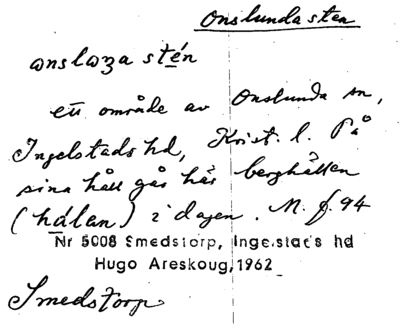 Onslunda sten
ɷnslɷza stén
ett område av Onslunda sn,
Ingelstads hd, Krist. l. På
sina håll går här berghällen
(hálan) i dagen. M. f. 94
Nr 5008 Smedstorp, Ingelstad's hd
Hugo Areskoug, 1962
Smedstorp